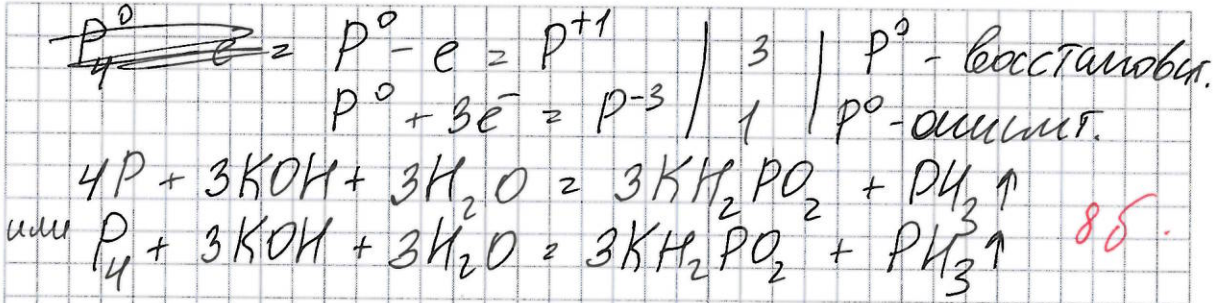 P⁰ - e = P⁺¹ | 3 | P⁰ - восстановит.
P⁰ + 3e⁻ = P⁻³ | 1 | P⁰ - окислит.
4P + 3KOH + 3H₂O = 3KH₂PO₂ + PH₃↑
или P₄ + 3KOH + 3H₂O = 3KH₂PO₂ + PH₃↑
8б.